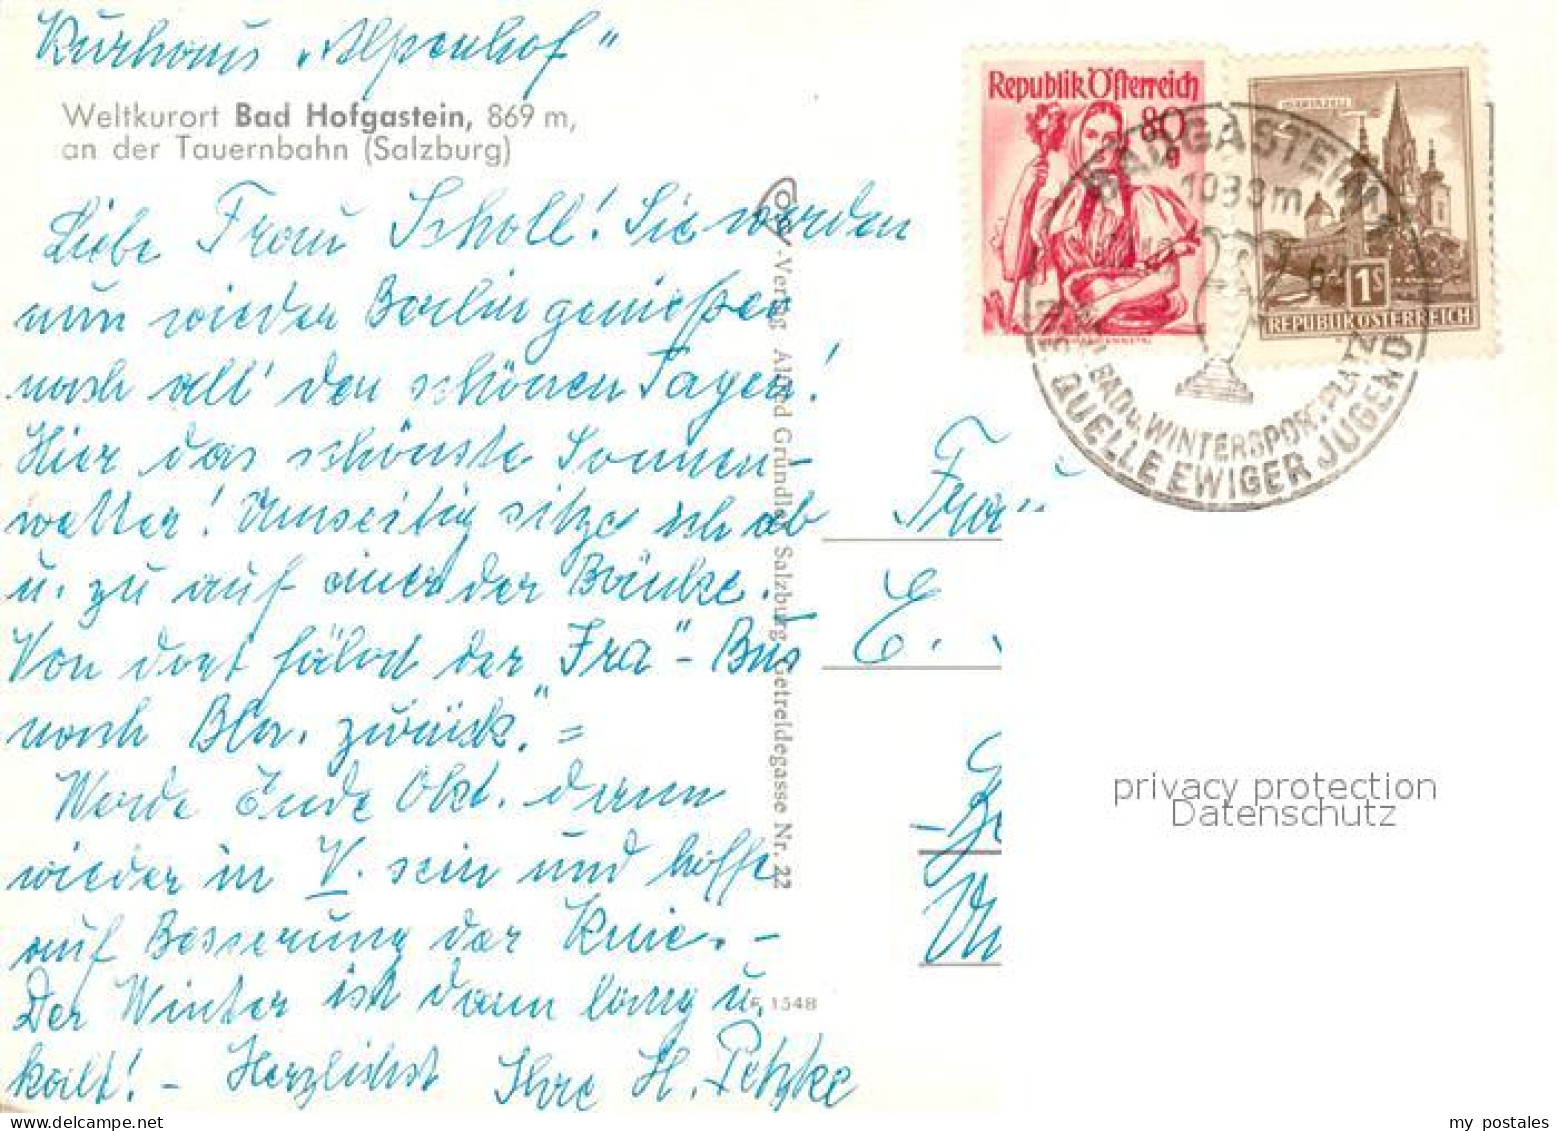 Kurhaus „Alpenhof"
Weltkurort Bad Hofgastein, 869 m,
an der Tauernbahn (Salzburg)
Liebe Frau Scholl! Sie werden
nun wieder Berlin genießen
nach all' den schönen Tagen!
Hier das schönste Sonnen-
wetter! Umseitig sitze ich ab
u. zu auf einer der Bänke.
Von dort fährt der "Fra"-Bus
nach Bln. zurück." =
Werde Ende Okt. dann
wieder in V. sein und hoffe
auf Besserung der Knie. -
Der Winter ist dann lang u.
kalt! - Herzlichst Ihre H. Petzke
Cosy-Verlag Alfred Gründler Salzburg, Getreidegasse Nr. 22
F 1548
Republik Österreich
80
g
MARIAZELL
1S
REPUBLIK ÖSTERREICH
BADGASTEIN
1083m
HEILBAD u. WINTERSPORTPLATZ
QUELLE EWIGER JUGEND
Frau
E.
privacy protection
Datenschutz
my postales